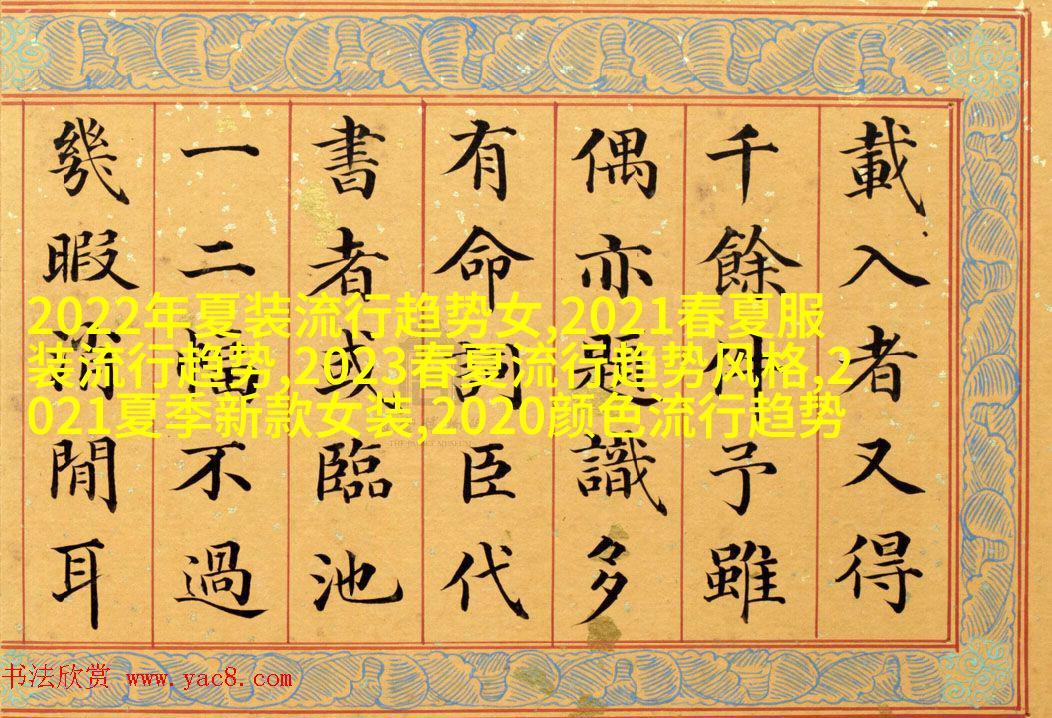 載入者又得
千餘予雖
偶亦題識多
有命詞臣代
書者或臨池
一二幅不過
幾暇消閒耳
2022年夏装流行趋势女,2021春夏服
装流行趋势,2023春夏流行趋势风格,2
021夏季新款女装,2020颜色流行趋势
THE PALACE MUSEUM
书法欣赏 www.yac8.com